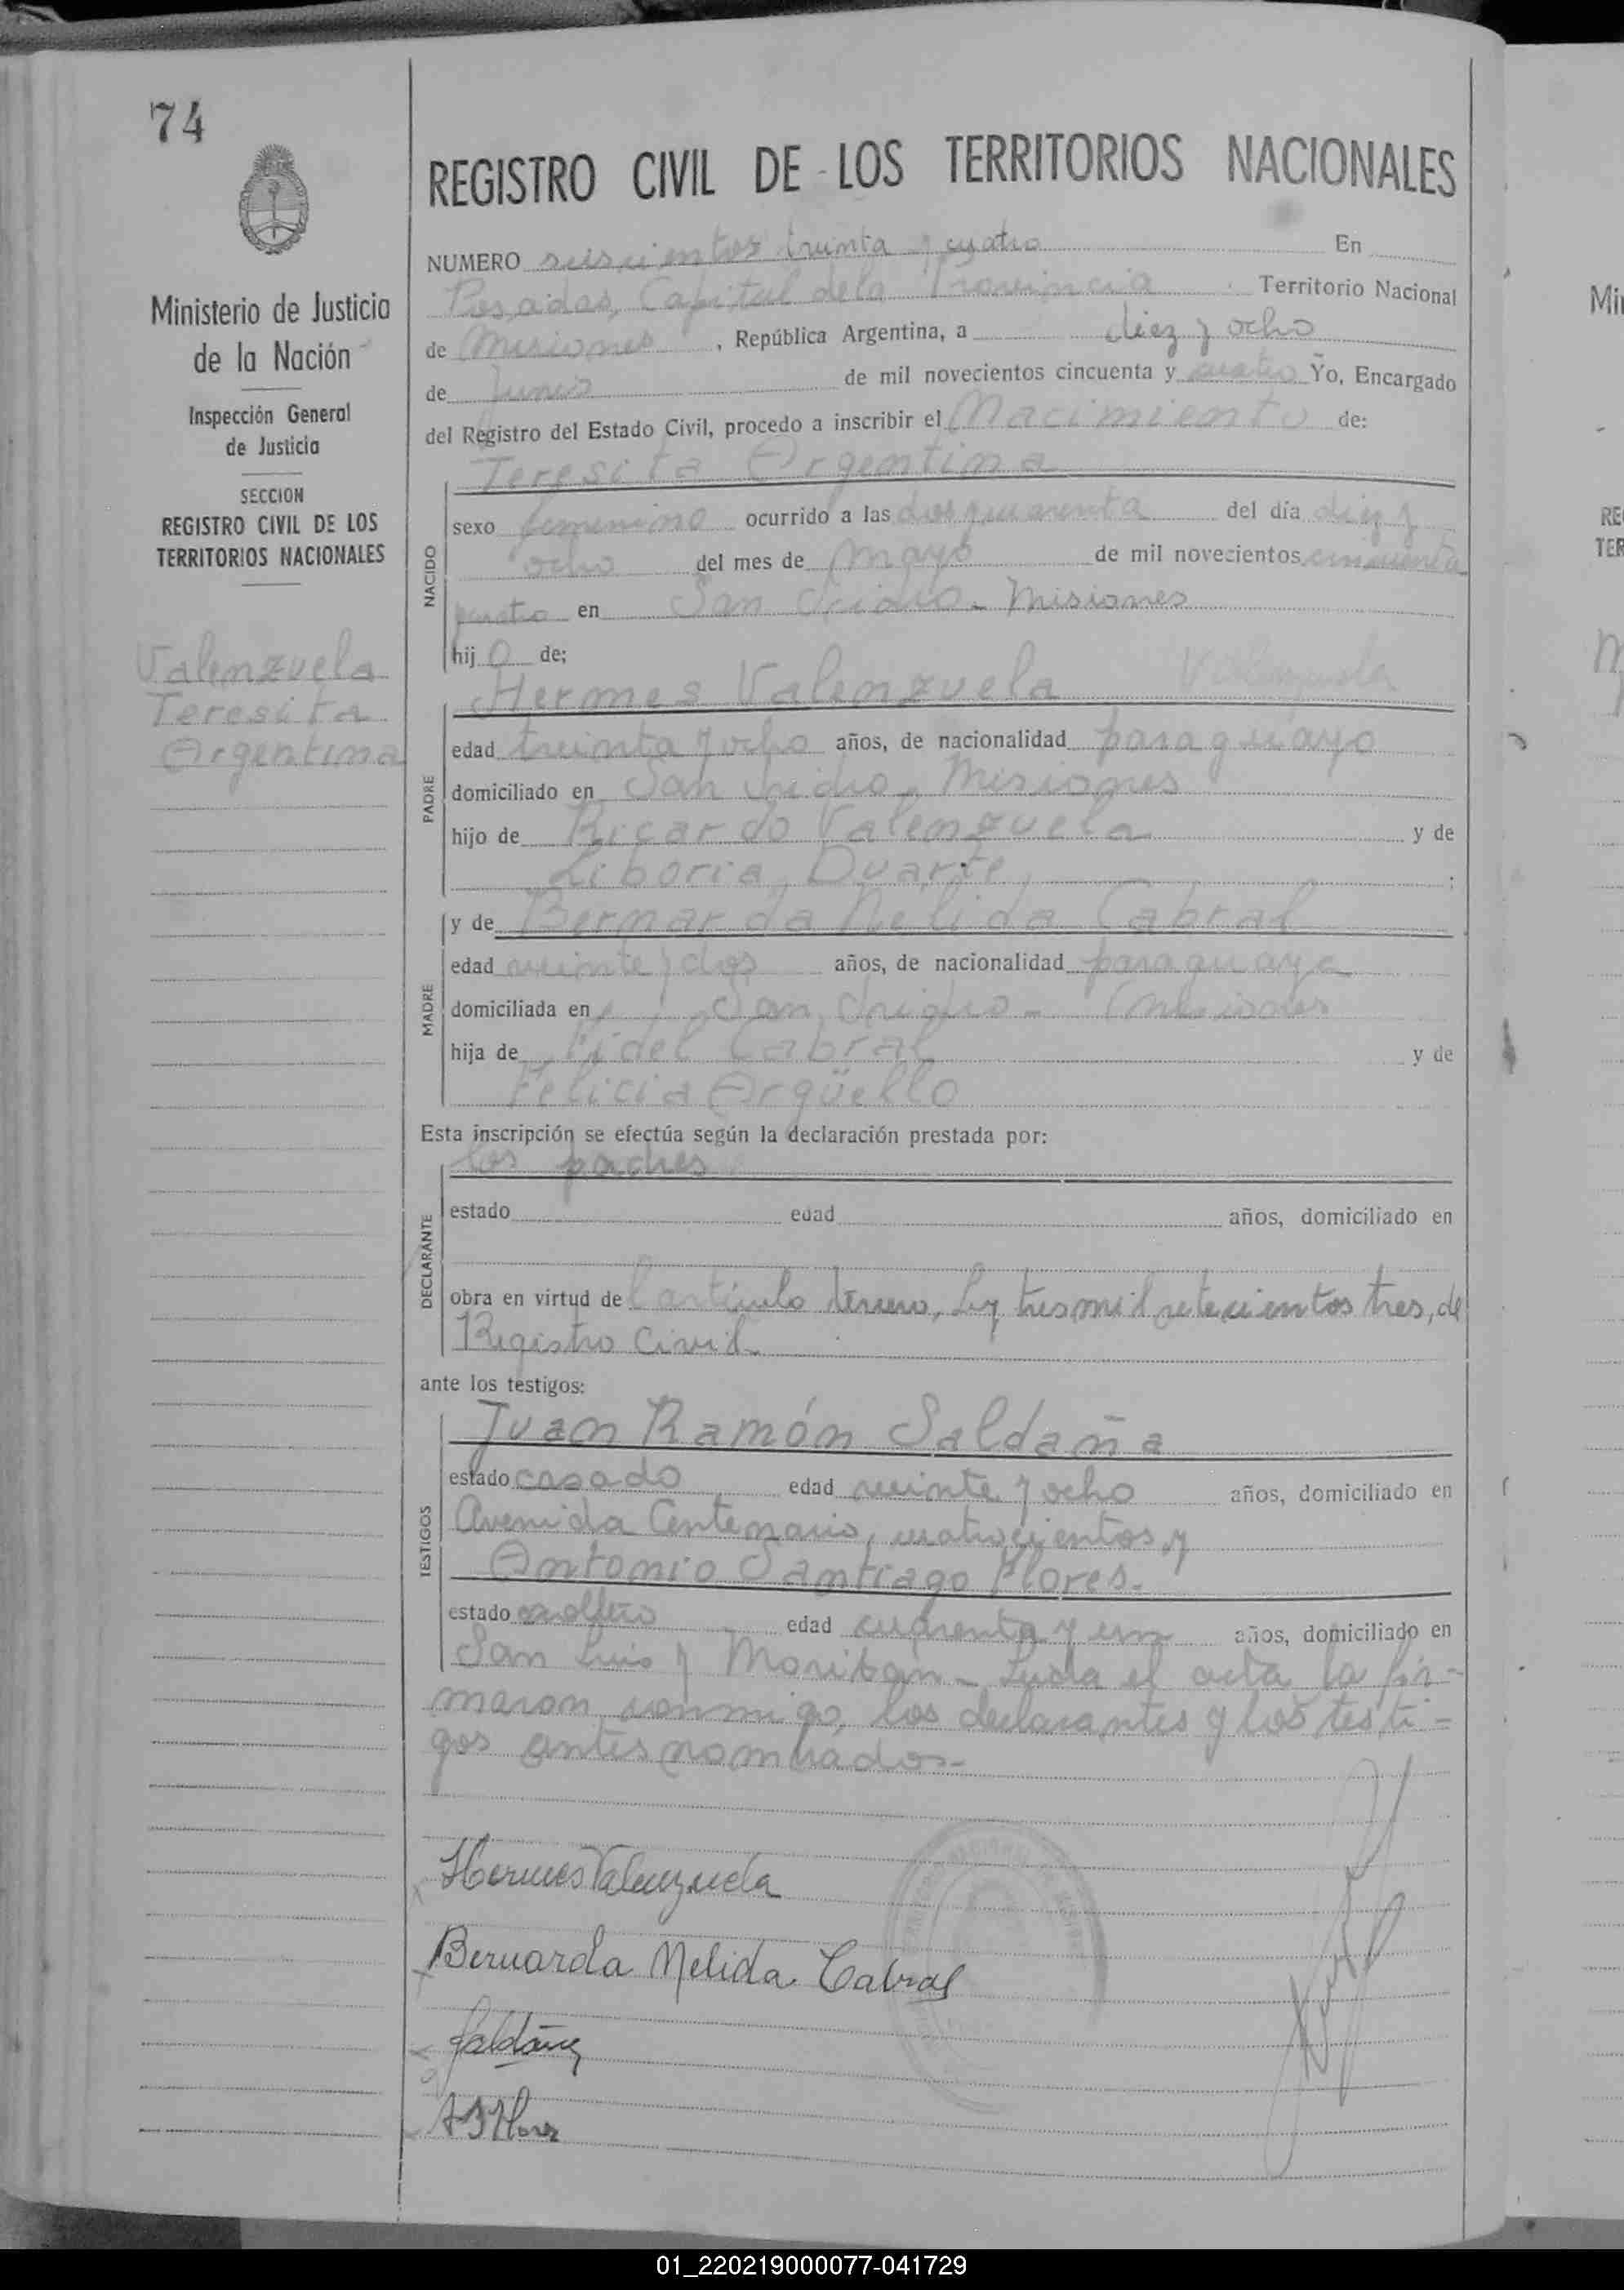 74
REGISTRO CIVIL DE LOS TERRITORIOS NACIONALES
Ministerio de Justicia
de la Nación
Inspección General
de Justicia
SECCION
REGISTRO CIVIL DE LOS
TERRITORIOS NACIONALES
Valenzuela
Teresita
Argentina
NUMERO seiscientos treinta y cuatro En
Posadas, Capital de la Provincia Territorio Nacional
de Misiones, República Argentina, a diez y ocho
de Junio de mil novecientos cincuenta y cuatro Yo, Encargado
del Registro del Estado Civil, procedo a inscribir el Nacimiento de:
Teresita Argentina
NACIDO
sexo femenino ocurrido a las dos y cuarenta del día diez y
ocho del mes de Mayo de mil novecientos cincuenta
cuatro en San Isidro - Misiones
hij a de;
Hermes Valenzuela Valenzuela
PADRE
edad treinta y ocho años, de nacionalidad paraguayo
domiciliado en San Isidro, Misiones
hijo de Ricardo Valenzuela y de
Liboria Duarte ;
y de Bernarda Nélida Cabral
MADRE
edad veinte y dos años, de nacionalidad paraguaya
domiciliada en San Isidro - Misiones
hija de Fidel Cabral y de
Felicia Argüello
Esta inscripción se efectúa según la declaración prestada por:
los padres
DECLARANTE
estado edad años, domiciliado en
obra en virtud del artículo tercero, Ley tres mil setecientos tres, de
Registro Civil.
ante los testigos:
TESTIGOS
Juan Ramón Saldaña
estado casado edad veinte y ocho años, domiciliado en
Avenida Centenario, cuatrocientos y
Antonio Santiago Flores.
estado soltero edad cuarenta y un años, domiciliado en
San Luis y - Leida el acta la fir-
maron conmigo, los declarantes y los testi-
gos antes nombrados.-
Hermes Valenzuela
Bernarda Nelida Cabral
Saldaña
A S Flores
Mi
RE
TER
01_220219000077-041729